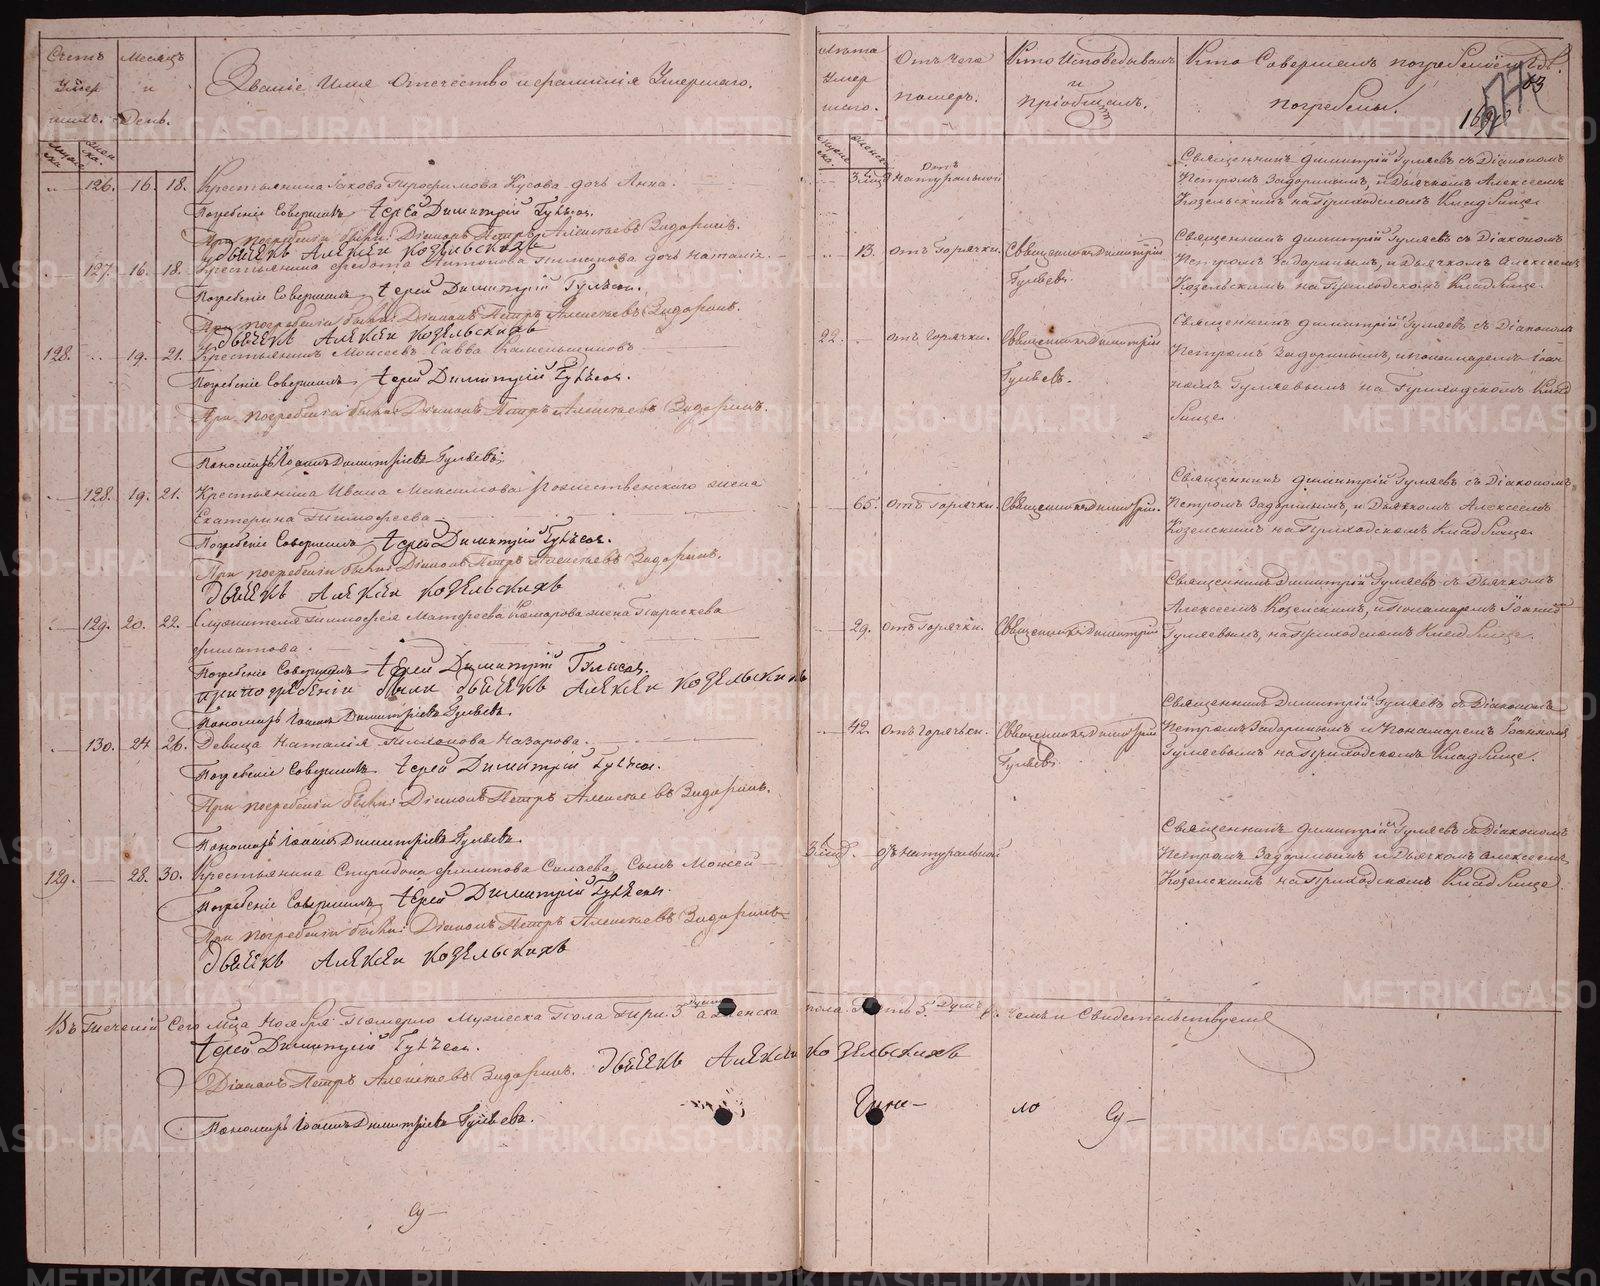 Счетъ умершихъ.
Месяцъ и День.
Званіе Имя Отечество и фамилія Умершаго.
Мужеска. Женска.
126. 16. 18. Крестьянина Іакова Трофимова Кусова дочь Анна.
Погребеніе Совершалъ Іерей Димитрій Гуляевъ.
При погребеніи были: Діаконъ Петръ Алексѣевъ Задоринъ.
дьячекъ Алексѣй Козельскихъ
127. 16. 18. Крестьянина Антонова дочь Наталія.
Погребеніе Совершалъ Іерей Димитрій Гуляевъ.
При погребеніи были: Діаконъ Петръ Алексѣевъ Задоринъ.
дьячекъ Алексѣй Козельскихъ
128. 19. 21. Крестьянинъ Моисеевъ Савва Каменьщиковъ
Погребеніе Совершалъ Іерей Димитрій Гуляевъ.
При погребеніи были: Діаконъ Петръ Алексѣевъ Задоринъ.
Пономарь Іоаннъ Димитріевъ Гуляевъ.
128. 19. 21. Крестьянина Ивана Максимова Рожественскаго жена
Екатерина Тимофеева
Погребеніе Совершалъ Іерей Димитрій Гуляевъ.
При погребеніи были: Діаконъ Петръ Алексѣевъ Задоринъ.
дьячекъ Алексѣй Козельскихъ
129. 20. 22. Служителя Тимофея Матфеева Комарова жена Параскева
Филатова.
Погребеніе Совершалъ Іерей Димитрій Гуляевъ.
при погребеніи были дьячекъ Алексѣй Козельскихъ
Пономарь Іоаннъ Димитріевъ Гуляевъ.
130. 24. 26. Девица Наталія Назарова.
Погребеніе Совершалъ Іерей Димитрій Гуляевъ.
При погребеніи были: Діаконъ Петръ Алексѣевъ Задоринъ.
Пономарь Іоаннъ Димитріевъ Гуляевъ.
129. 28. 30. Крестьянина Спиридона Филипова Силаева, Сынъ Моисей
Погребеніе Совершалъ Іерей Димитрій Гуляевъ.
При погребеніи были: Діаконъ Петръ Алексѣевъ Задоринъ
дьячекъ Алексѣй Козельскихъ
Въ Теченіи Сего Мца Ноября Померло Мужеска Пола 5 душъ а Женска пола 5. Душъ Въ Чемъ и Свидетельствуемъ
Іерей Димитрій Гуляевъ.
Діаконъ Петръ Алексѣевъ Задоринъ. дьячекъ Алексѣй Козельскихъ
Пономарь Іоаннъ Димитріевъ Гуляевъ.
Лѣта Умершаго.
Отъ Чего померъ.
Кто Исповедывалъ и пріобщалъ.
Кто Совершалъ погребеніе и Гдѣ. погребены.
Мужеска. Женска.
Отъ Натуральной
Священникъ Димитрій Гуляевъ съ Діакономъ
Петромъ Задоринымъ, и Дьячкомъ Алексеемъ
Козельскимъ на Приходскомъ Кладбище.
13. отъ Горячки. Священникъ Димитрій
Гуляевъ.
Священникъ Димитрій Гуляевъ съ Діакономъ
Петромъ Задоринымъ, и Дьячкомъ Алексеемъ
Козельскимъ на Приходскомъ Кладбище.
22. отъ Горячки. Священникъ Димитрій
Гуляевъ.
Священникъ Димитрій Гуляевъ съ Діакономъ
Петромъ Задоринымъ, и пономаремъ Іоан
номъ Гуляевымъ на Приходскомъ Клад
бище.
65. отъ Горячки. Священникъ Димитрій.
Священникъ Димитрій Гуляевъ съ Діакономъ
Петромъ Задоринымъ, и Дьячкомъ Алексеемъ
Козелскимъ на Приходскомъ Кладбище.
29. отъ Горячки. Священникъ Димитрій
Священникъ Димитрій Гуляевъ съ Дьячкомъ
Алексеемъ Козелскимъ, и Пономаремъ Іоанномъ
Гуляевымъ, на Приходскомъ Кладбище.
42. отъ Горячьки. Священникъ Димитрій
Гуляевъ.
Священникъ Димитрій Гуляевъ съ Діакономъ
Петромъ Задоринымъ и Пономаремъ Іоанномъ
Гуляевымъ на Приходскомъ Кладбище.
отъ натуральной
Священникъ Димитрій Гуляевъ съ Діакономъ
Петромъ Задоринымъ и Дьячкомъ Алексеемъ
Козелскимъ на Приходскомъ Кладбище.
METRIKI.GASO-URAL.RU